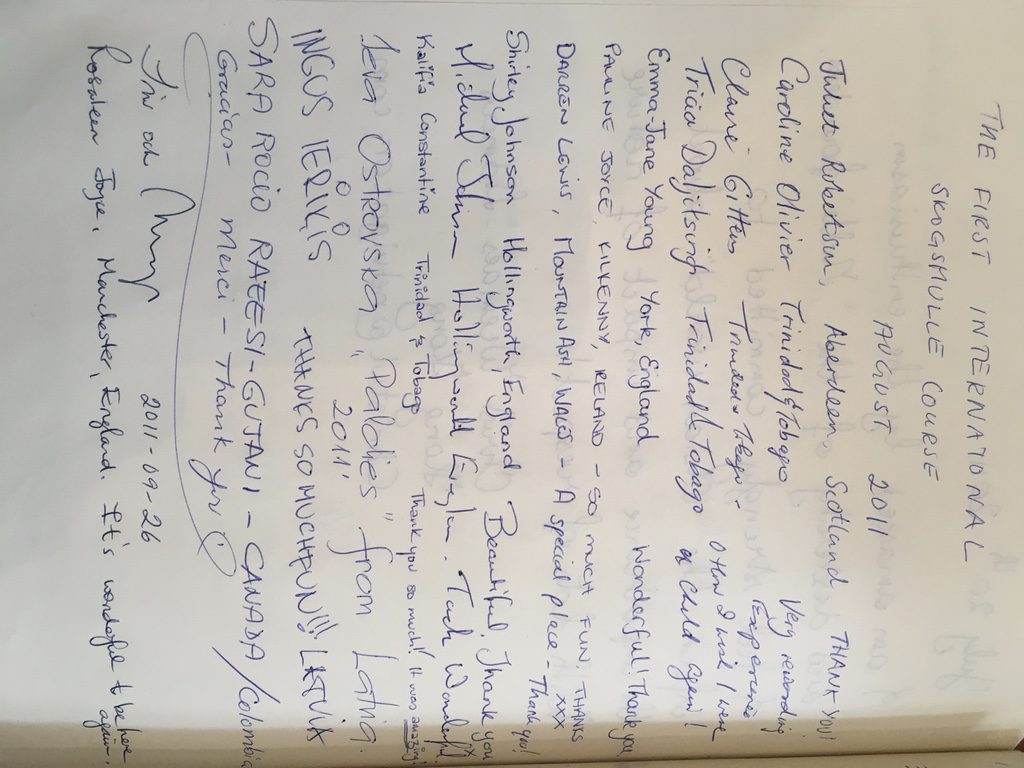 THE FIRST INTERNATIONAL
SKOGSMULLE COURSE
AUGUST 2011
Juliet Robertson, Aberdeen, Scotland THANK YOU!
Caroline Olivier Trinidad & Tobago Very rewarding Experience
Claire Gittens Trinidad & Tobago - O how I wish I were a child again!
Tricia Daljitsingh Trinidad & Tobago
Emma-Jane Young York, England Wonderful! Thank you
PAULINE JOYCE, KILKENNY, IRELAND - SO MUCH FUN, THANKS XXX
DARREN LEWIS, MOUNTAIN ASH, WALES - A special place - Thank you!
Shirley Johnson Hollingworth, England Beautiful, Thank you
Michael Johnson Hollingworth England. Tack Wonderful x
Kalifa Constantine Trinidad & Tobago Thank you so much! It was amazing!
Ieva Ostrovska "Paldies" from Latvia.
2011
INGUS IERIĶIS THENKS SO MUCH FUN!!! LATVIA
SARA ROCIO RAEESI-GUJANI - CANADA / Colombia
Gracias - Merci - Thank you
Siw och 2011-09-26
Rosaleen Joyce, Manchester, England. It's wonderful to be here again.